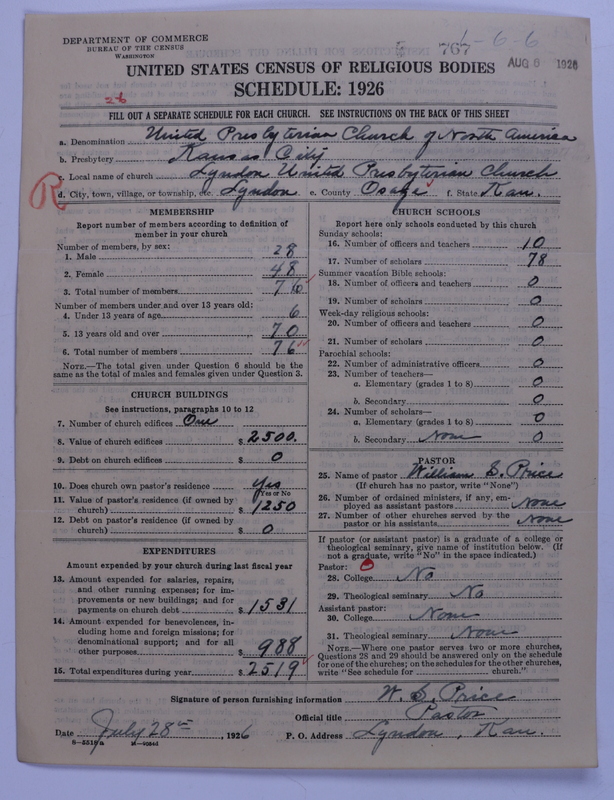 DEPARTMENT OF COMMERCE
BUREAU OF THE CENSUS
WASHINGTON
767 1-6-6
AUG 6 1926
UNITED STATES CENSUS OF RELIGIOUS BODIES
SCHEDULE: 1926
26
FILL OUT A SEPARATE SCHEDULE FOR EACH CHURCH. SEE INSTRUCTIONS ON THE BACK OF THIS SHEET
a. Denomination United Presbyterian Church of North America
b. Presbytery Kansas City
c. Local name of church Lyndon United Presbyterian Church
R
d. City, town, village, or township, etc. Lyndon e. County Osage f. State Kan.
MEMBERSHIP
Report number of members according to definition of
member in your church
Number of members, by sex:
1. Male 28
2. Female 48
3. Total number of members 76
Number of members under and over 13 years old:
4. Under 13 years of age 6
5. 13 years old and over 70
6. Total number of members 76
NOTE.—The total given under Question 6 should be
same as the total of males and females given under Question 3.
CHURCH BUILDINGS
See instructions, paragraphs 10 to 12
7. Number of church edifices One
8. Value of church edifices $ 2500.
9. Debt on church edifices $ 0
10. Does church own pastor's residence Yes
Yes or No
11. Value of pastor's residence (if owned by
church) $ 1250
12. Debt on pastor's residence (if owned by
church) $ 0
EXPENDITURES
Amount expended by your church during last fiscal year
13. Amount expended for salaries, repairs,
and other running expenses; for im-
provements or new buildings; and for
payments on church debt $ 1531
14. Amount expended for benevolences, in-
cluding home and foreign missions; for
denominational support; and for all
other purposes $ 988
15. Total expenditures during year $ 2519
CHURCH SCHOOLS
Report here only schools conducted by this church
Sunday schools:
16. Number of officers and teachers 10
17. Number of scholars 78
Summer vacation Bible schools:
18. Number of officers and teachers 0
19. Number of scholars 0
Week-day religious schools:
20. Number of officers and teachers 0
21. Number of scholars 0
Parochial schools:
22. Number of administrative officers 0
23. Number of teachers—
a. Elementary (grades 1 to 8) 0
b. Secondary 0
24. Number of scholars—
a. Elementary (grades 1 to 8) 0
b. Secondary None 0
PASTOR
25. Name of pastor William S. Price
(If church has no pastor, write "None")
26. Number of ordained ministers, if any, em-
ployed as assistant pastors None
27. Number of other churches served by the
pastor or his assistants None
If pastor (or assistant pastor) is a graduate of a college or
theological seminary, give name of institution below. (If
not a graduate, write "No" in the space indicated.)
Pastor: 0
28. College No
29. Theological seminary No
Assistant pastor:
30. College None
31. Theological seminary None
NOTE.—Where one pastor serves two or more churches,
Questions 28 and 29 should be answered only on the schedule
for one of the churches; on the schedules for the other churches,
write "See schedule for church."
Signature of person furnishing information W. S. Price
Official title Pastor
Date July 28th, 1926 P. O. Address Lyndon, Kan.
8-5518a